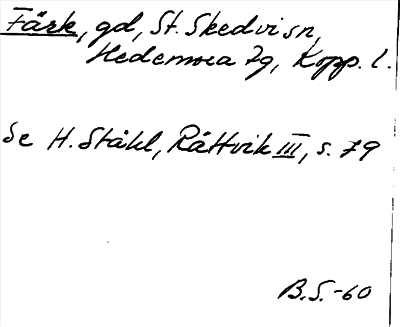 Färk, gd, St. Skedvi sn,
Hedemora tg, Kopp. l.
Se H. Ståhl, Rättvik III, s. 79
B.S.-60